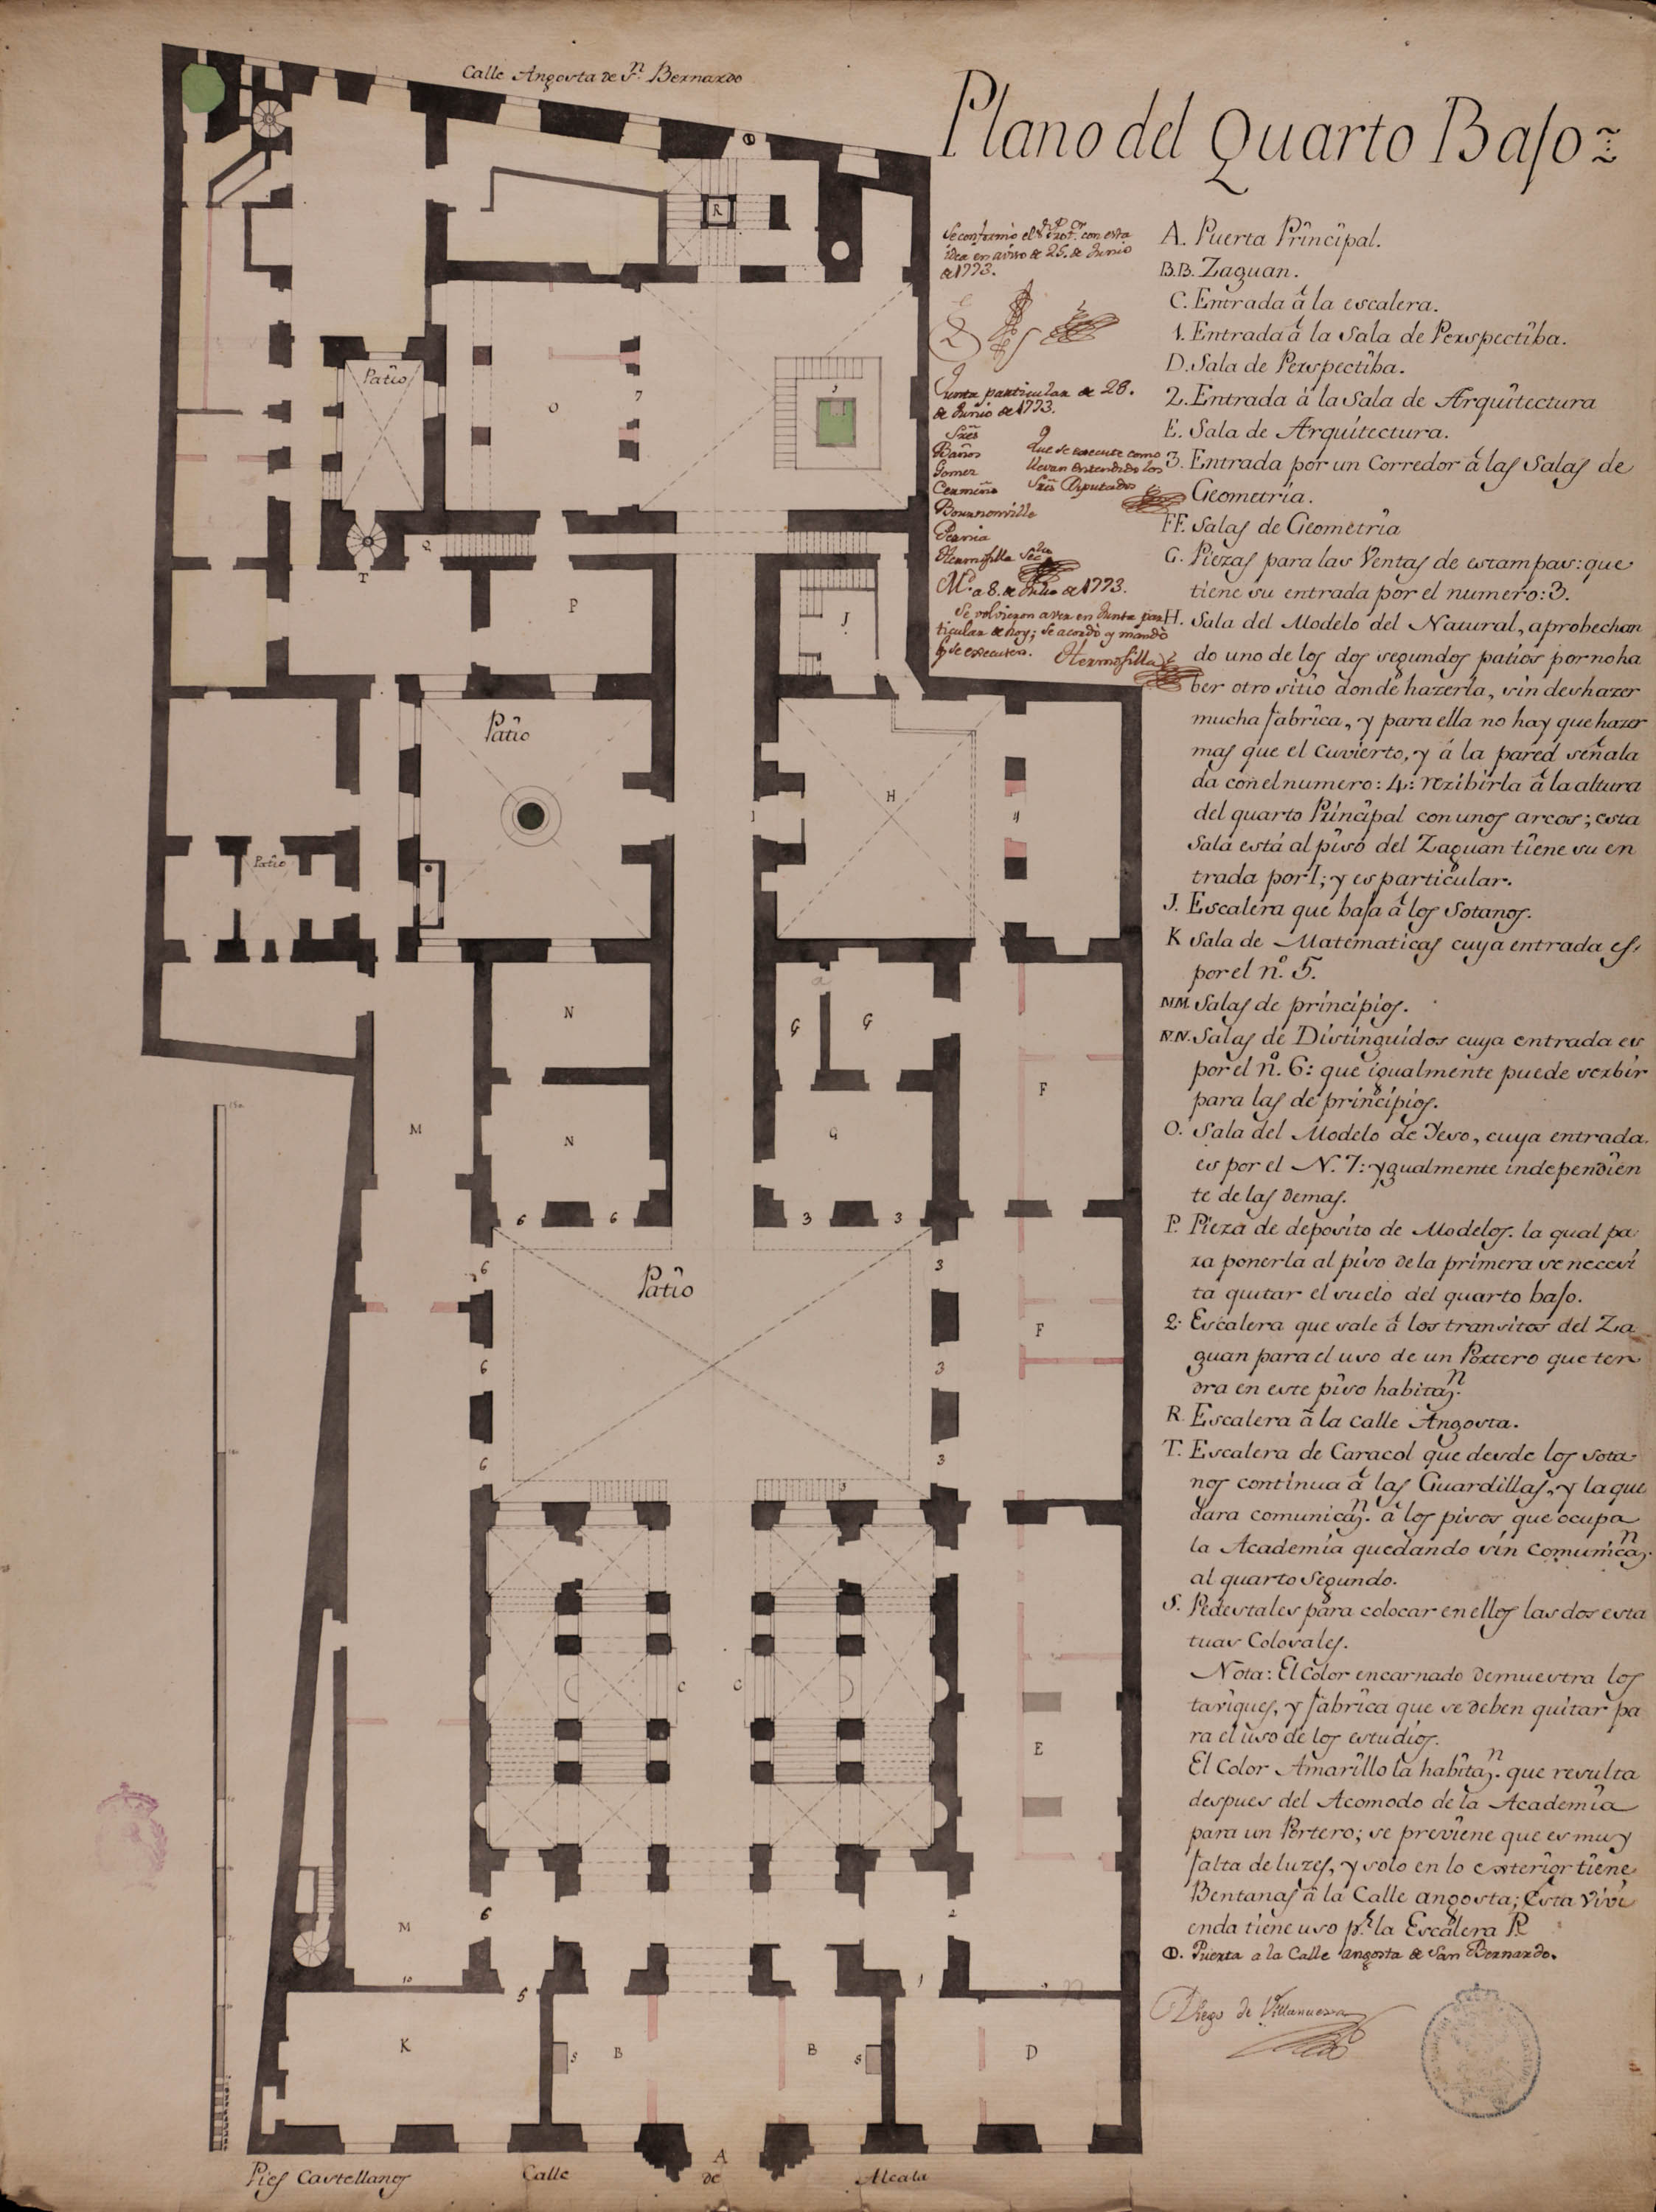 Calle Angosta de Sn. Bernardo
Plano del Quarto Bajo
Se conformò el
con esta
idea en aviso de 25. de Junio
de 1773.
Junta particular de 28.
de Junio de 1773.
Sres
Baños
Gomez
Cermeño
Bournonville
Pernia
Hermosilla Secrio
Que se execute como
llevan entendido los
Sres Diputados
Md. a 8. de Julio de 1773.
Se volvieron a ver en Junta par
ticular de hoy; se acordò y mandò
q se execute.
Hermosilla
A. Puerta Principal.
B.B. Zaguan.
C. Entrada â la escalera.
1. Entrada â la Sala de Perspectiba.
D. Sala de Perspectiba.
2. Entrada à la Sala de Arquitectura
E. Sala de Arquitectura.
3. Entrada por un Corredor â las Salas de
Geometria.
FF. Salas de Geometria
G. Piezas para las Ventas de estampas: que
tiene su entrada por el numero: 3.
H. Sala del Modelo del Natural, aprobechan
do uno de los dos segundos patios por no ha
ber otro sitio donde hazerla, sin deshazer
mucha fabrica, y para ella no hay que hazer
mas que el Cuvierto, y á la pared señala
da con el numero: 4: rezibirla â la altura
del quarto Principal con unos arcos; esta
Sala está al piso del Zaguan tiene su en
trada por I; y es particular.
J. Escalera que baja â los Sotanos.
K Sala de Matematicas cuya entrada es,
por el no. 5.
MM. Salas de principios.
N.N. Salas de Distinguidos cuya entrada es
por el no. 6: que igualmente puede serbir
para las de principios.
O. Sala del Modelo de Yeso, cuya entrada
es por el N. 7: ygualmente independien
te de las demas.
P. Pieza de deposito de Modelos. la qual pa
ra ponerla al piso de la primera se necesi
ta quitar el suelo del quarto bajo.
2: Escalera que sale â los transitos del Za
guan para el uso de un Portero que ten
dra en este piso habitazn.
R. Escalera â la calle Angosta.
T. Escalera de Caracol que desde los sota
nos continua â las Guardillas, y la que
dara comunicazn. a los pisos que ocupa
la Academia quedando sin Comunicazn.
al quarto Segundo.
S. Pedestales para colocar en ellos las dos esta
tuas Colosales.
Nota: El Color encarnado demuestra los
taviques, y fabrica que se deben quitar pa
ra el uso de los estudios.
El Color Amarillo la habitazn. que resulta
despues del Acomodo de la Academia
para un Portero; se previene que es muy
falta de luzes, y solo en lo exterior tiene
Bentanas â la Calle angosta; Esta vivi
enda tiene uso pr. la Escalera R
Ⓓ. Puerta a la Calle angosta de San Bernardo.
Diego de Villanueva
R
Patio
O
7
Q
T
P
J
Patio
H
4
Patio
N
G
G
M
N
G
F
6
6
3
3
6
3
Patio
F
6
3
6
3
C
C
E
M
6
2
5
1
K
S
B
B
S
D
A
Pies Castellanos
Calle
de
Alcala